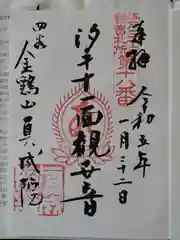 奉拝
第十八番
令和五年
一月二十二日
汐干十一面観世音
四谷
金鶏山真成院